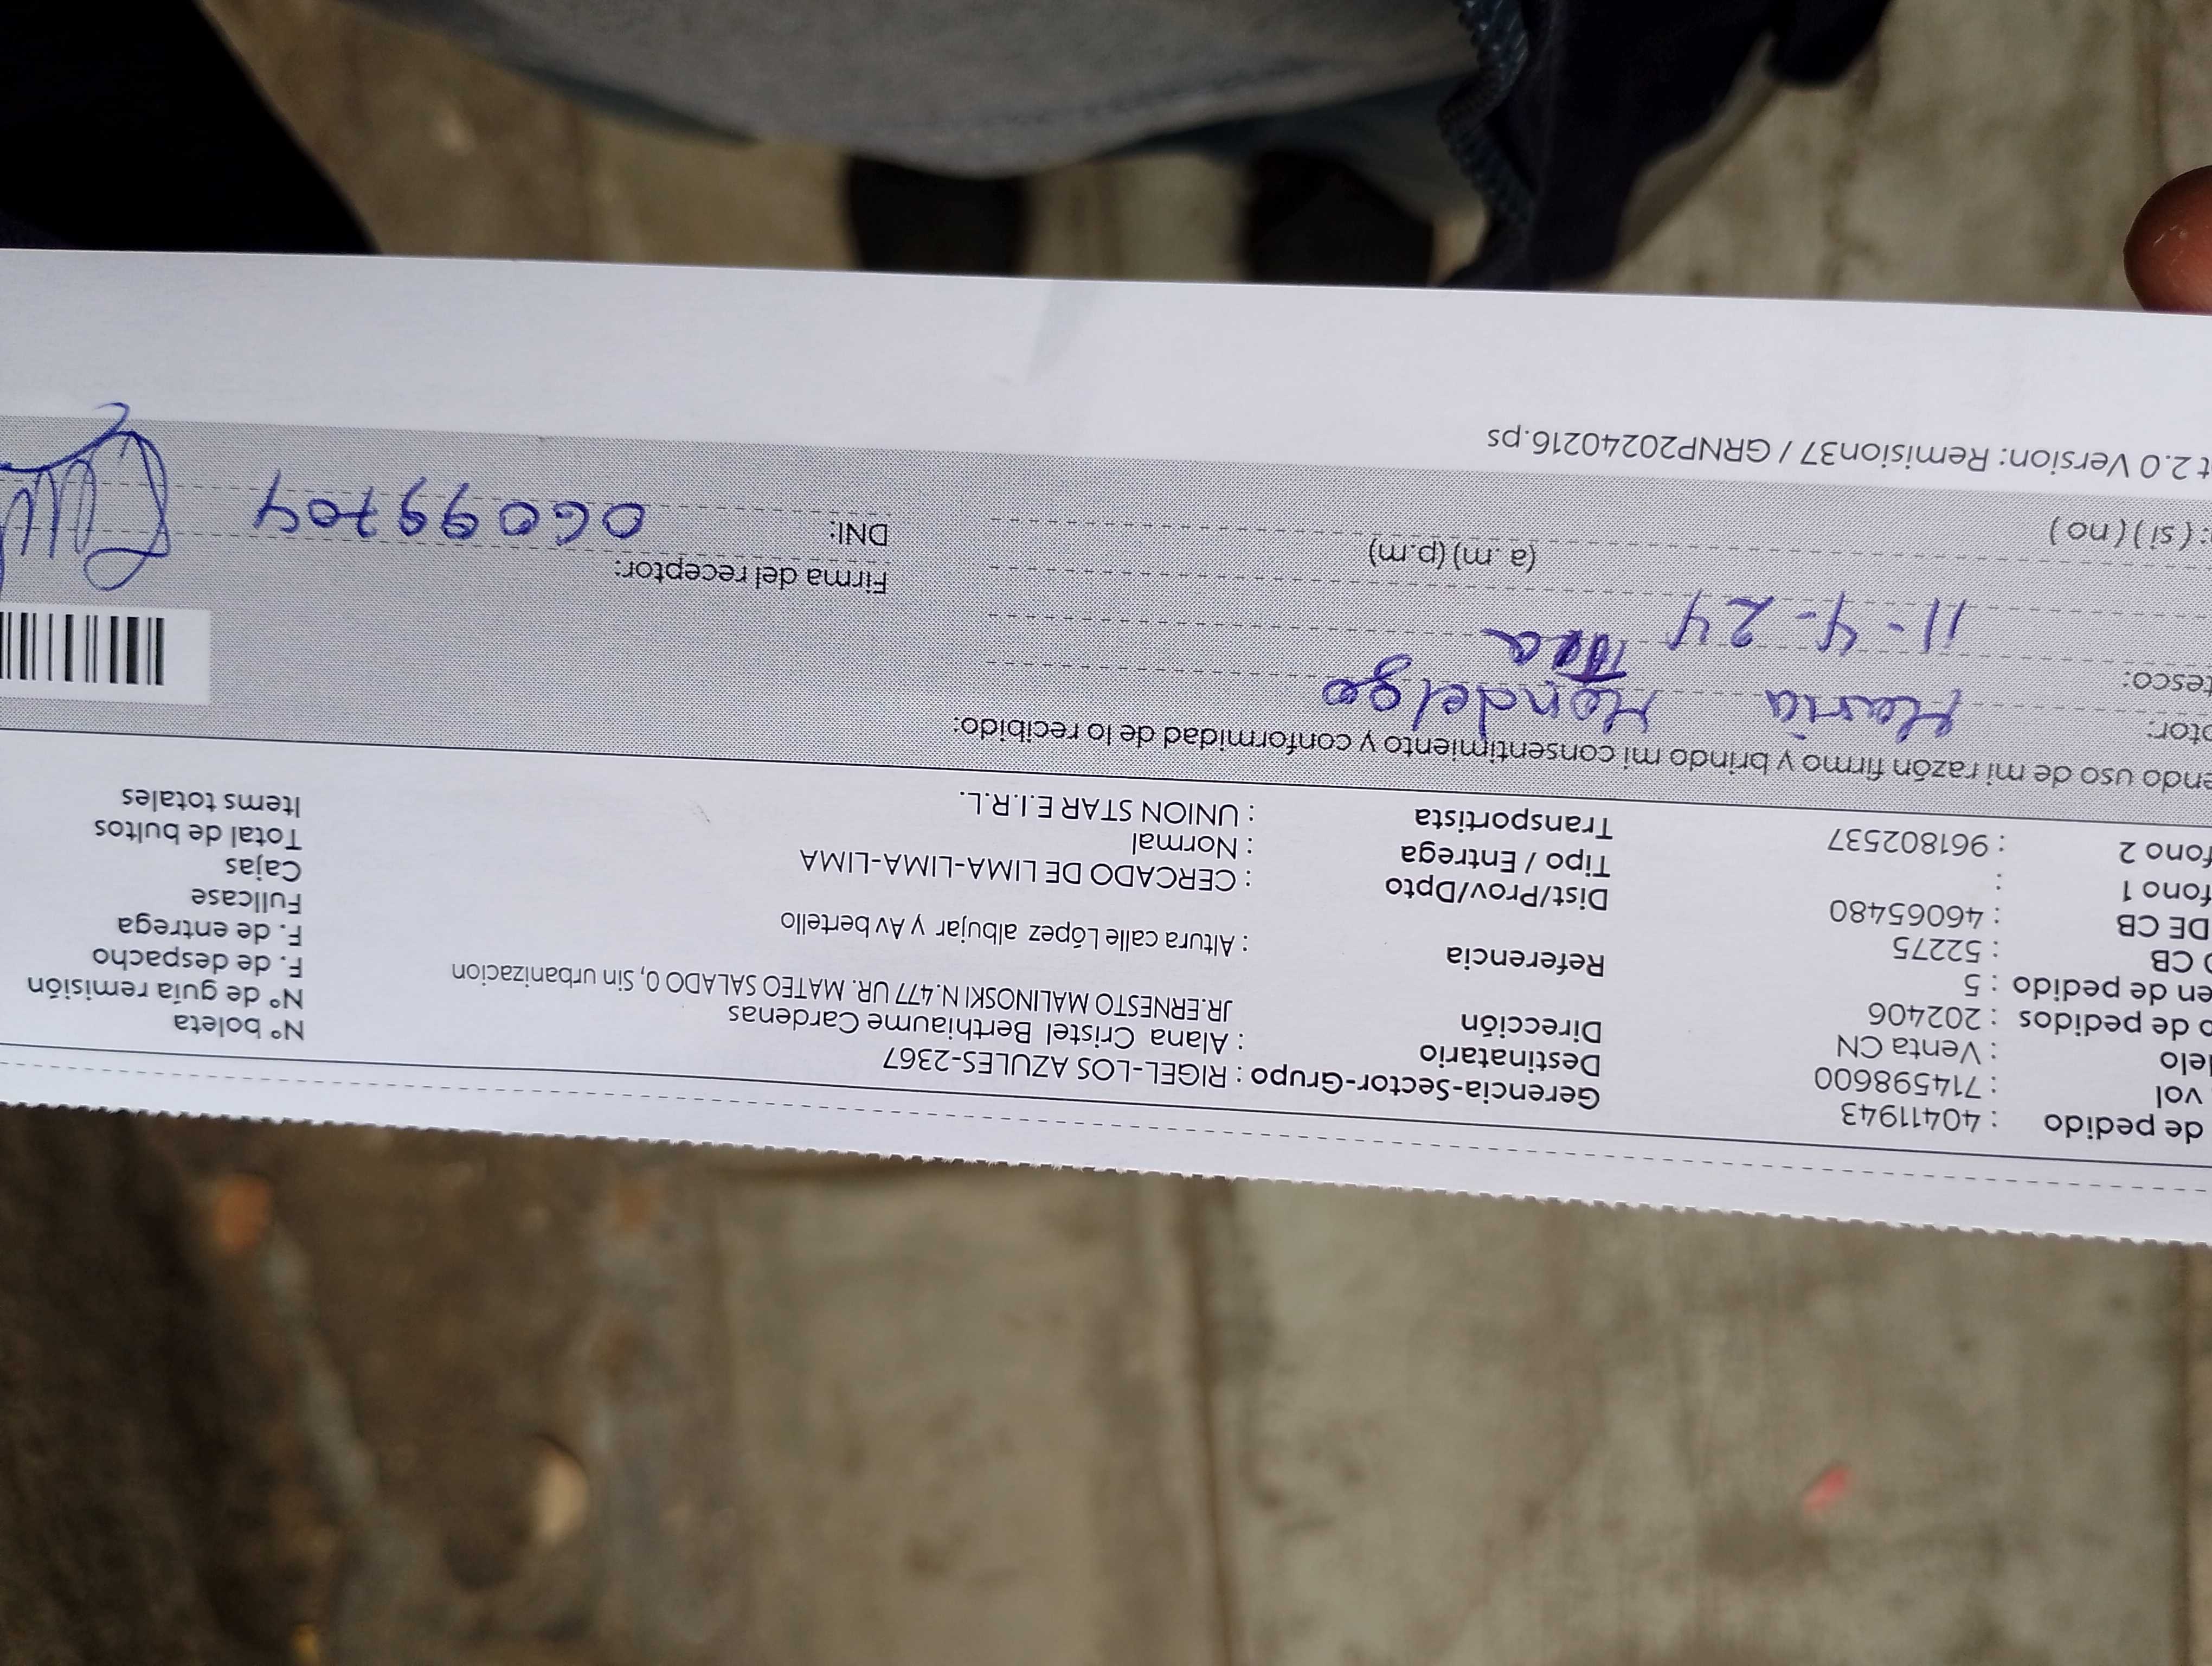 de pedido : 40411943 Gerencia-Sector-Grupo : RIGEL-LOS AZULES-2367 N° boleta
vol : 714598600 Destinatario : Alana Cristel Berthiaume Cardenas N° de guía remisión
elo : Venta CN Dirección JR.ERNESTO MALINOSKI N.477 UR. MATEO SALADO 0, Sin urbanizacion F. de despacho
o de pedidos : 202406 F. de entrega
en de pedido : 5 Referencia : Altura calle López albujar y Av bertello Fullcase
CB : 52275 Cajas
DE CB : 46065480 Dist/Prov/Dpto : CERCADO DE LIMA-LIMA-LIMA Total de bultos
fono 1 : Tipo / Entrega : Normal Items totales
fono 2 : 961802537 Transportista : UNION STAR E.I.R.L.
endo uso de mi razón firmo y brindo mi consentimiento y conformidad de lo recibido:
ptor: Maria Mondelgo
tesco: Tia
11-4-24 Firma del receptor:
(a .m) (p.m) DNI: 06099704
: ( si ) ( no )
t 2.0 Version: Remision37 / GRNP20240216.ps